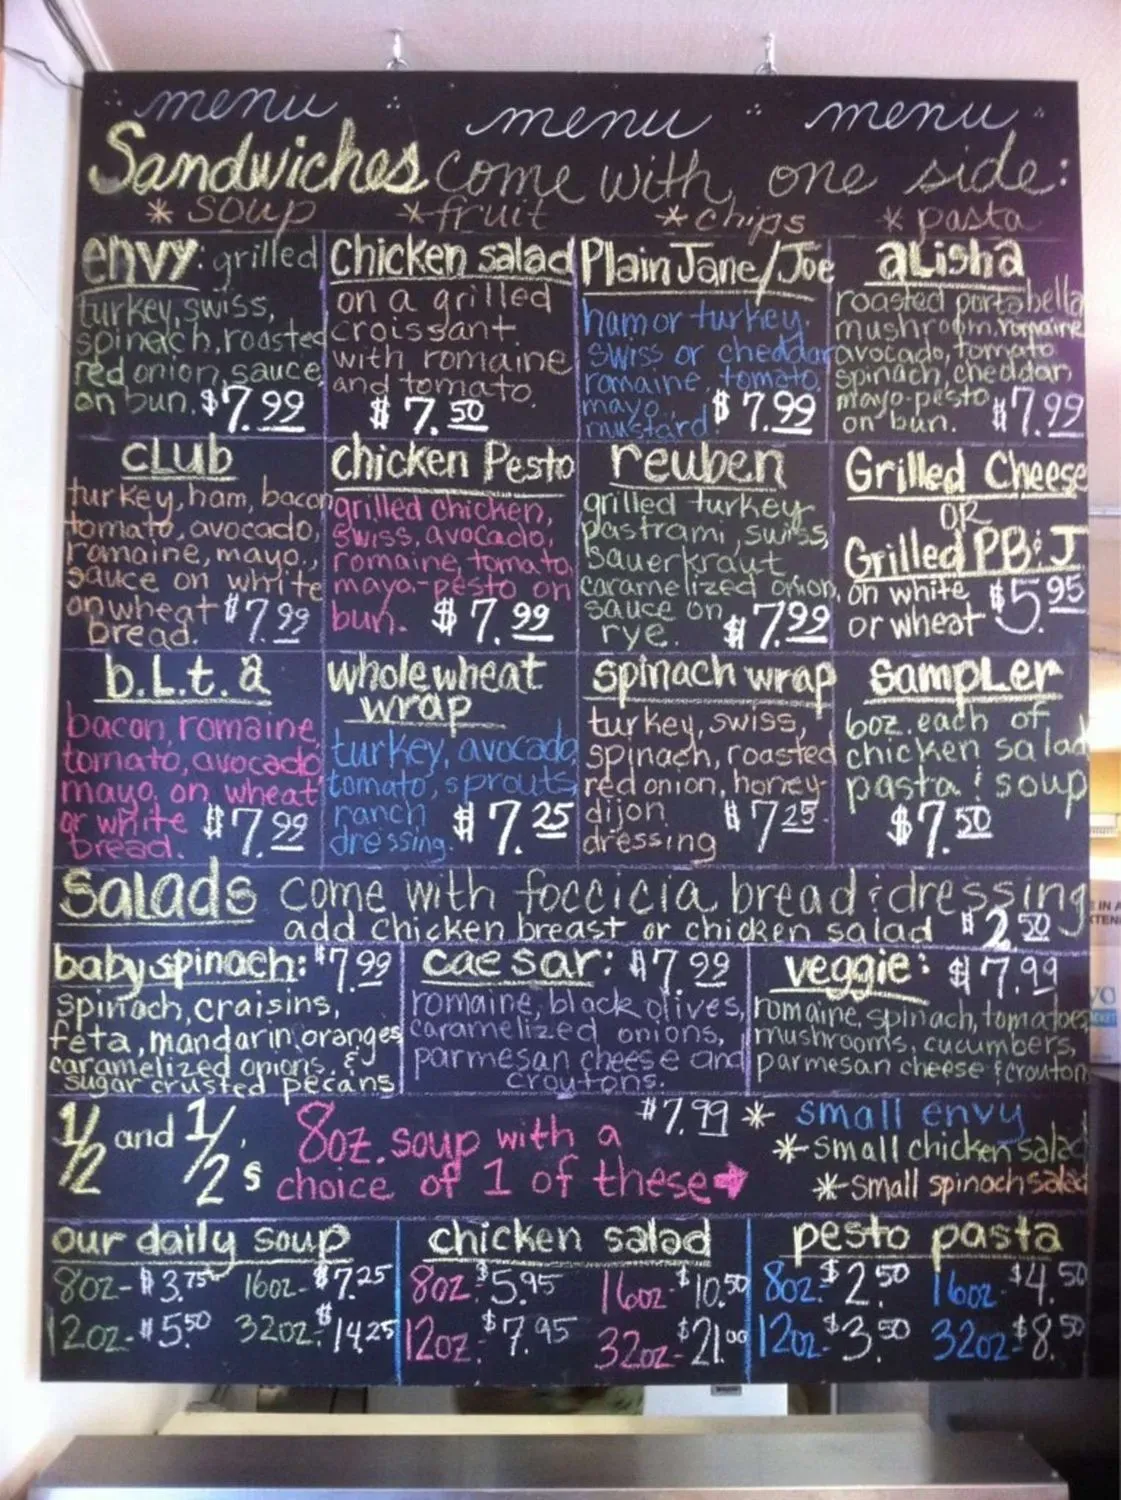 menu menu menu
Sandwiches come with one side:
* soup * fruit * chips * pasta
envy: grilled
turkey, swiss,
spinach, roasted
red onion, sauce
on bun. $7.99
Chicken salad
on a grilled
croissant
with romaine
and tomato.
$7.50
Plain Jane/Joe
ham or turkey,
swiss or cheddar
romaine, tomato,
mayo,
mustard. $7.99
aLisha
roasted portabella
mushroom, romaine
avocado, tomato
spinach, cheddar,
mayo-pesto
on bun. $7.99
cLUb
turkey, ham, bacon
tomato, avocado,
romaine, mayo.,
sauce on white
or wheat $7.99
bread.
chicken Pesto
grilled chicken,
swiss, avocado,
romaine, tomato,
mayo-pesto on
bun. $7.99
reuben
grilled turkey
pastrami, swiss,
sauerkraut
caramelized onion,
sauce on
rye. $7.99
Grilled Cheese
OR
Grilled PB&J
on white
or wheat $5.95
b.L.t.a
bacon, romaine,
tomato, avocado
mayo, on wheat
or white
bread. $7.99
whole wheat
wrap
turkey, avocado,
tomato, sprouts,
ranch
dressing. $7.25
spinach wrap
turkey, swiss,
spinach, roasted
red onion, honey-
dijon
dressing $7.25
sampLer
6oz. each of
chicken salad
pasta & soup
$7.50
SaLads come with foccicia bread & dressing
add chicken breast or chicken salad $2.50
baby spinach: $7.99
spinach, craisins,
feta, mandarin oranges
caramelized onions, &
sugar crusted pecans
caesar: $7.99
romaine, black olives,
caramelized onions,
parmesan cheese and
croutons.
veggie: $7.99
romaine, spinach, tomatoes,
mushrooms, cucumbers,
parmesan cheese & crouton
1/2 and 1/2's
8oz. soup with a
choice of 1 of these
$7.99 * small envy
* small chicken salad
* small spinach salad
our daily soup
8oz- $3.75 16oz- $7.25
12oz- $5.50 32oz- $14.25
chicken salad
8oz- $5.95 16oz- $10.50
12oz- $7.95 32oz- $21.00
pesto pasta
8oz- $2.50 16oz- $4.50
12oz- $3.50 32oz- $8.50